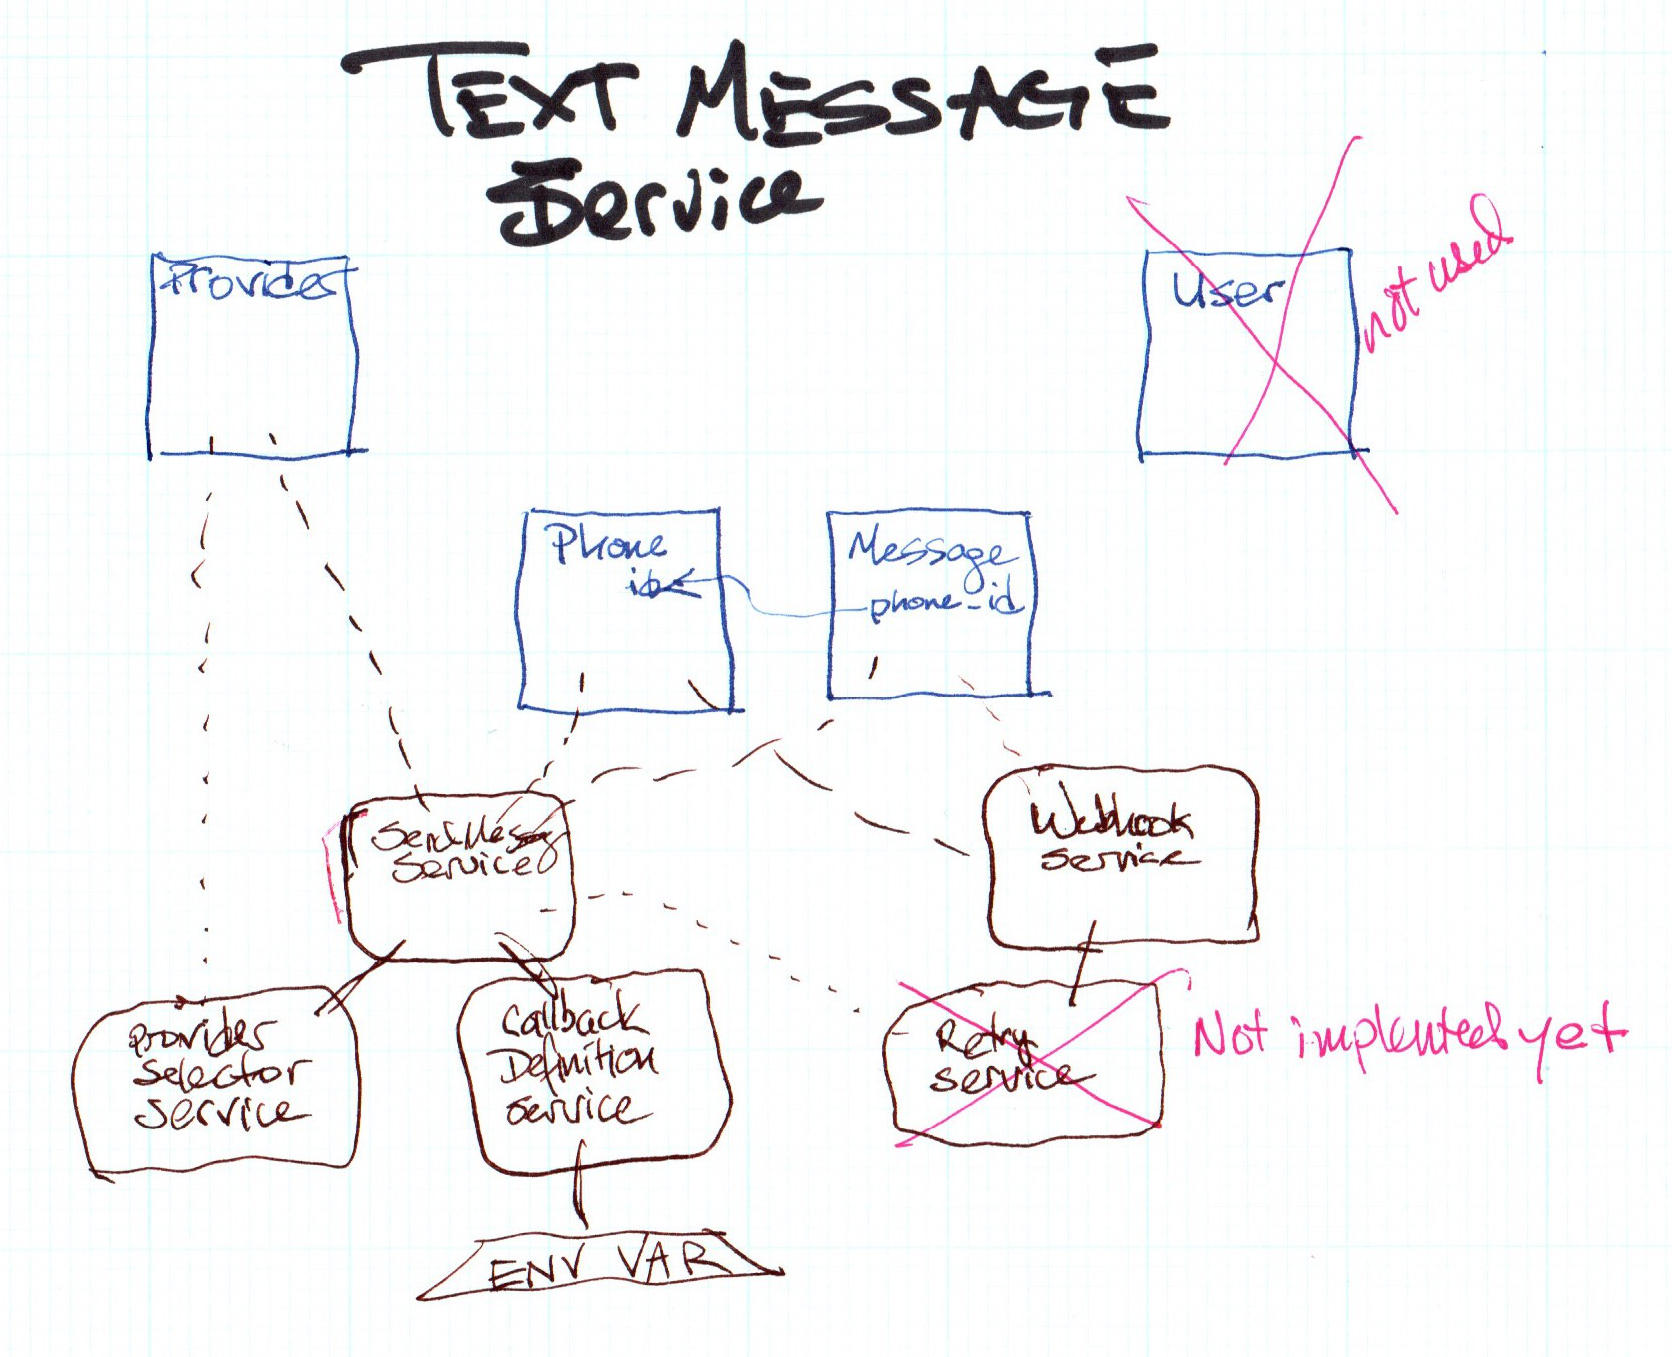 TEXT MESSAGE
Service
Provider
User
not used
Phone
id
Message
phone_id
Service
Webhook
Service
Provider
Selector
Service
Callback
Definition
Service
Retry
Service
Not implented yet
ENV VAR